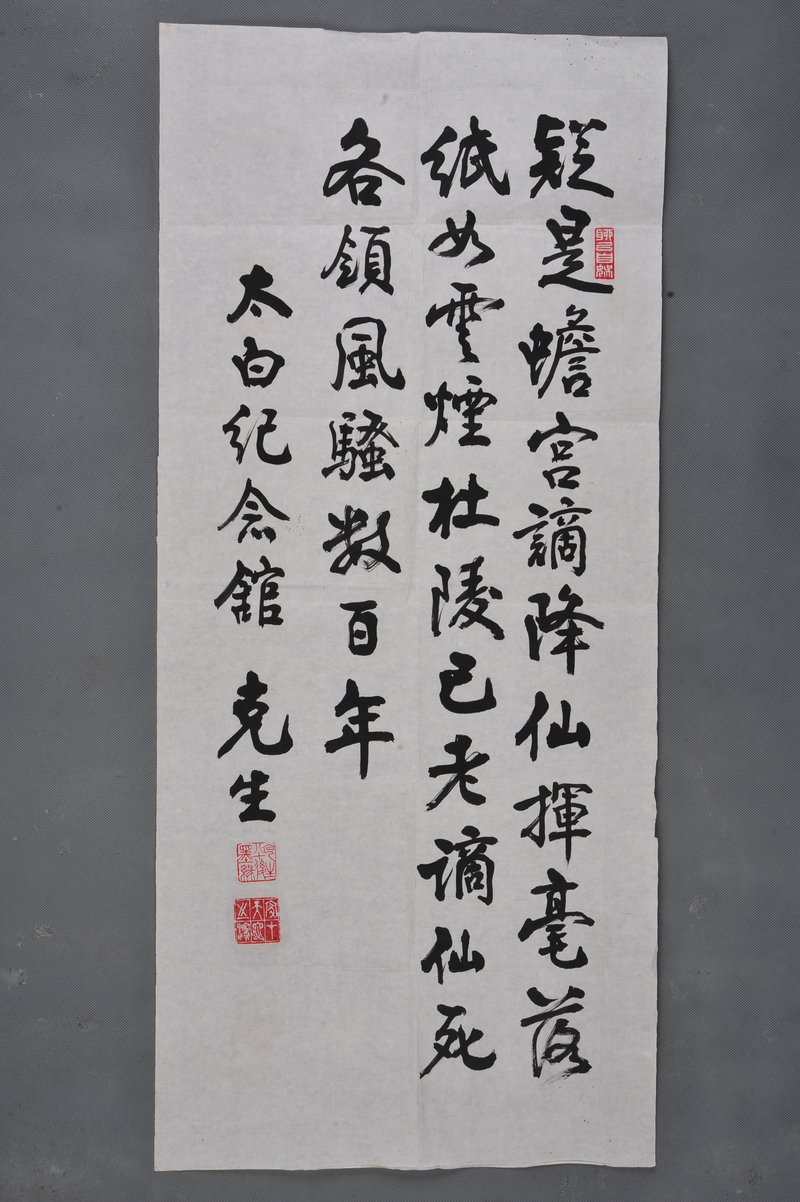 疑是蟾宫謫降仙揮毫落
紙如雲煙杜陵已老謫仙死
各領風騷数百年
太白纪念舘 克生